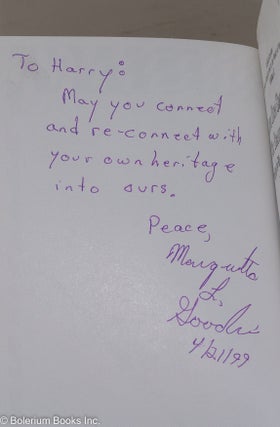 To Harry:
May you connect
and re-connect with
your own heritage
into ours.
Peace,
Marquetta
L.
Goodwine
4/21/99
© Bolerium Books Inc.